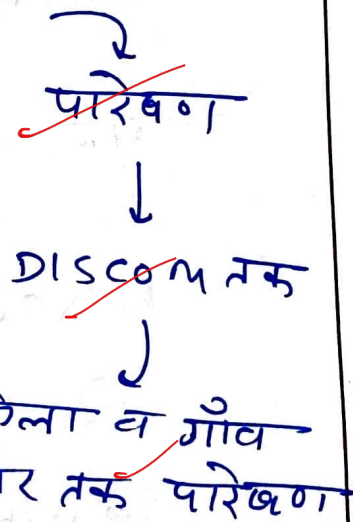 पारेषण
DISCOM तक
व गाँव
तक पारेषण